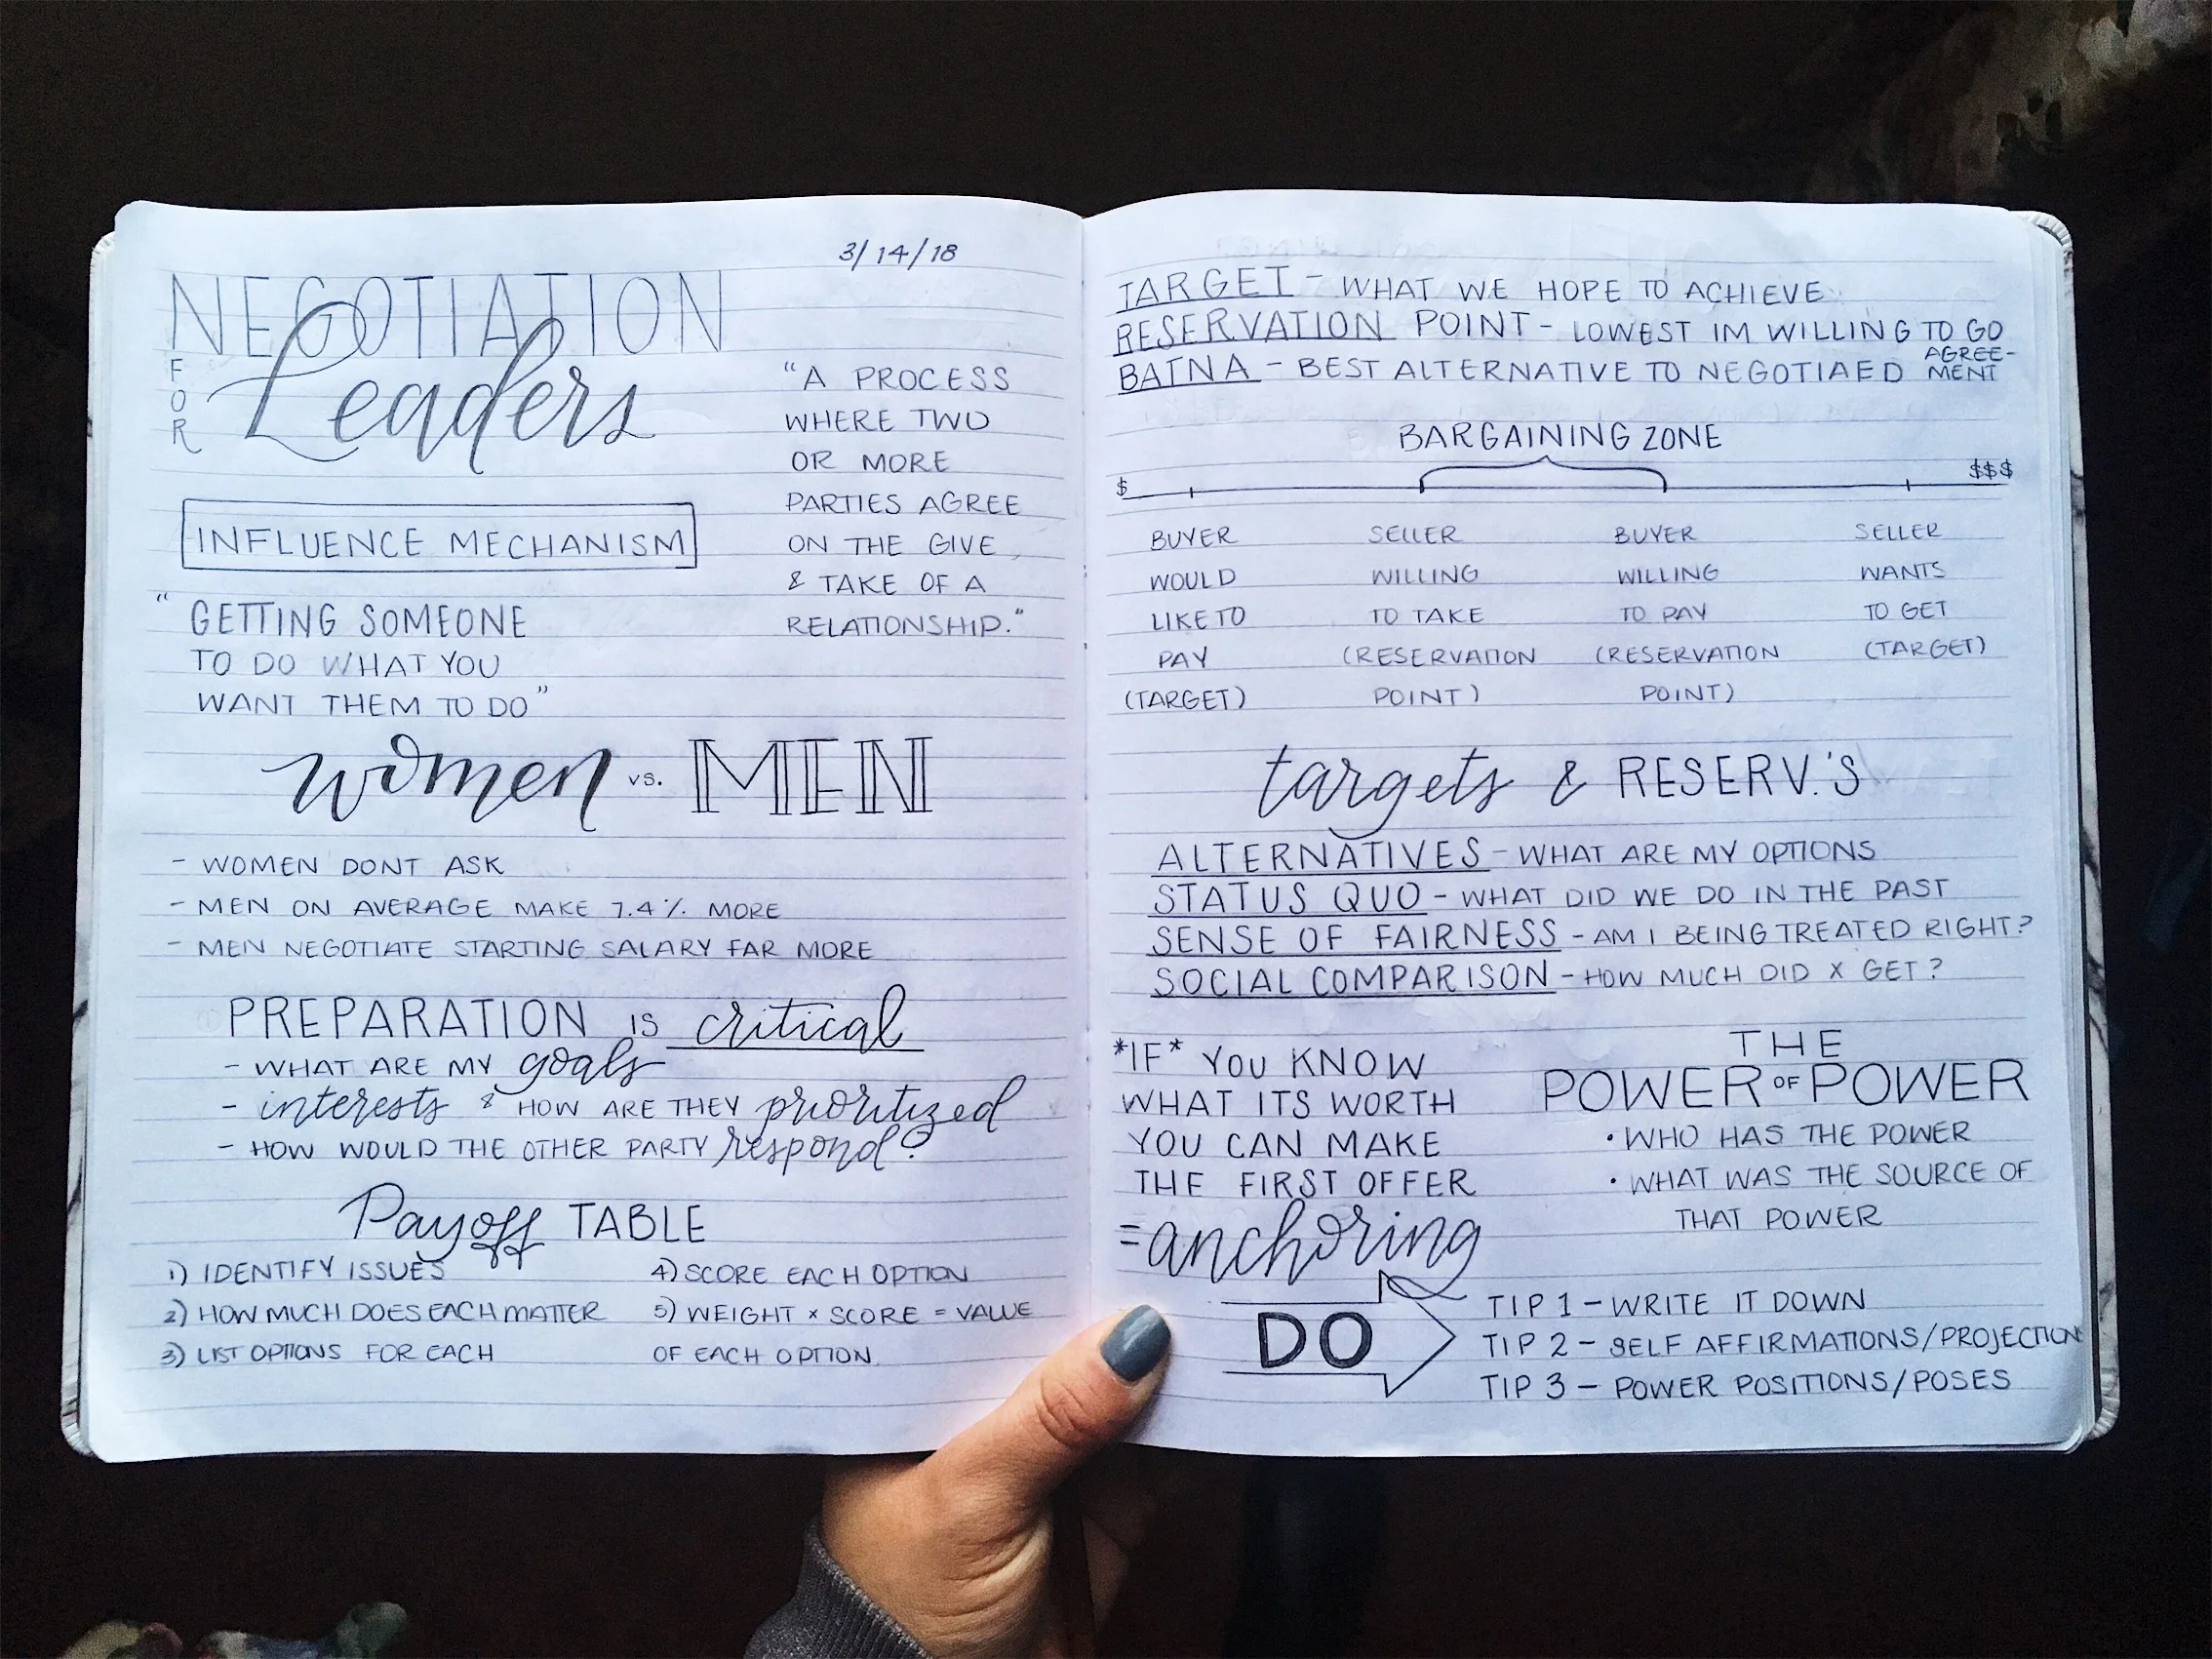 3/14/18
NEGOTIATION
FOR
Leaders
"A PROCESS
WHERE TWO
OR MORE
PARTIES AGREE
ON THE GIVE
& TAKE OF A
RELATIONSHIP."
INFLUENCE MECHANISM
"GETTING SOMEONE
TO DO WHAT YOU
WANT THEM TO DO"
women vs. MEN
- WOMEN DONT ASK
- MEN ON AVERAGE MAKE 7.4% MORE
- MEN NEGOTIATE STARTING SALARY FAR MORE
PREPARATION IS critical
- WHAT ARE MY goals
- interests & HOW ARE THEY prioritized
- HOW WOULD THE OTHER PARTY respond?
Payoff TABLE
1) IDENTIFY ISSUES
2) HOW MUCH DOES EACH MATTER
3) LIST OPTIONS FOR EACH
4) SCORE EACH OPTION
5) WEIGHT × SCORE = VALUE
OF EACH OPTION
TARGET - WHAT WE HOPE TO ACHIEVE
RESERVATION POINT - LOWEST IM WILLING TO GO
BATNA - BEST ALTERNATIVE TO NEGOTIAED AGREE-
MENT
BARGAINING ZONE
$ $$$
BUYER
WOULD
LIKE TO
PAY
(TARGET)
SELLER
WILLING
TO TAKE
(RESERVATION
POINT)
BUYER
WILLING
TO PAY
(RESERVATION
POINT)
SELLER
WANTS
TO GET
(TARGET)
targets & RESERV.'S
ALTERNATIVES - WHAT ARE MY OPTIONS
STATUS QUO - WHAT DID WE DO IN THE PAST
SENSE OF FAIRNESS - AM I BEING TREATED RIGHT?
SOCIAL COMPARISON - HOW MUCH DID X GET?
*IF* YOU KNOW
WHAT ITS WORTH
YOU CAN MAKE
THE FIRST OFFER
= anchoring
THE
POWER OF POWER
• WHO HAS THE POWER
• WHAT WAS THE SOURCE OF
THAT POWER
DO
TIP 1 - WRITE IT DOWN
TIP 2 - SELF AFFIRMATIONS/PROJECTIONS
TIP 3 - POWER POSITIONS/POSES